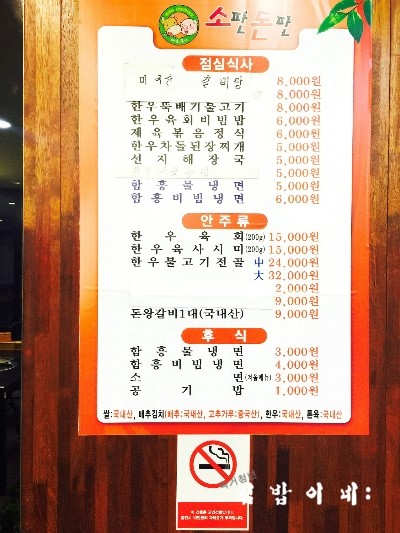 소판돈판
점심식사
미국산 갈비탕 8,000원
8,000원
한우뚝배기불고기 8,000원
한우육회비빔밥 6,000원
제육볶음정식 6,000원
한우차돌된장찌개 5,000원
선지해장국 5,000원
5,000원
함흥물냉면 5,000원
함흥비빔냉면 6,000원
안주류
한우육회(200g) 15,000원
한우육사시미(200g) 15,000원
한우불고기전골 中 24,000원
大 32,000원
2,000원
9,000원
돈왕갈비1대(국내산) 9,000원
후식
함흥물냉면 3,000원
함흥비빔냉면 4,000원
소면(겨울메뉴) 3,000원
공기밥 1,000원
쌀:국내산, 배추김치(배추:국내산, 고추가루:중국산), 한우:국내산, 돈육:국내산
밥이네: